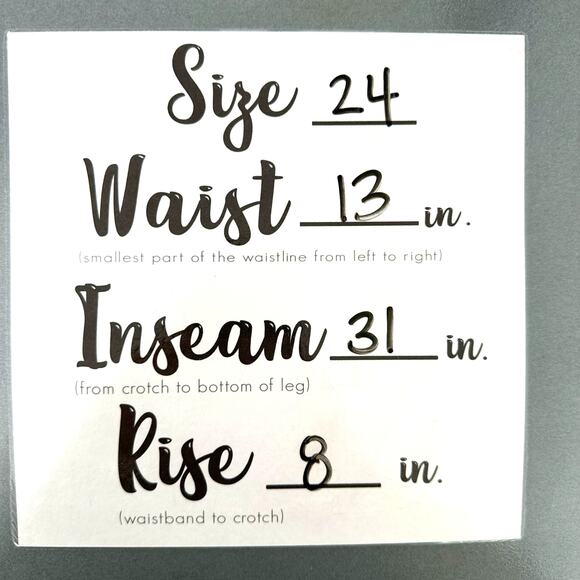 Size 24
Waist 13 in.
(smallest part of the waistline from left to right)
Inseam 31 in.
(from crotch to bottom of leg)
Rise 8 in.
(waistband to crotch)